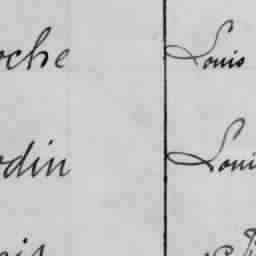 oche Louis
odin Loui